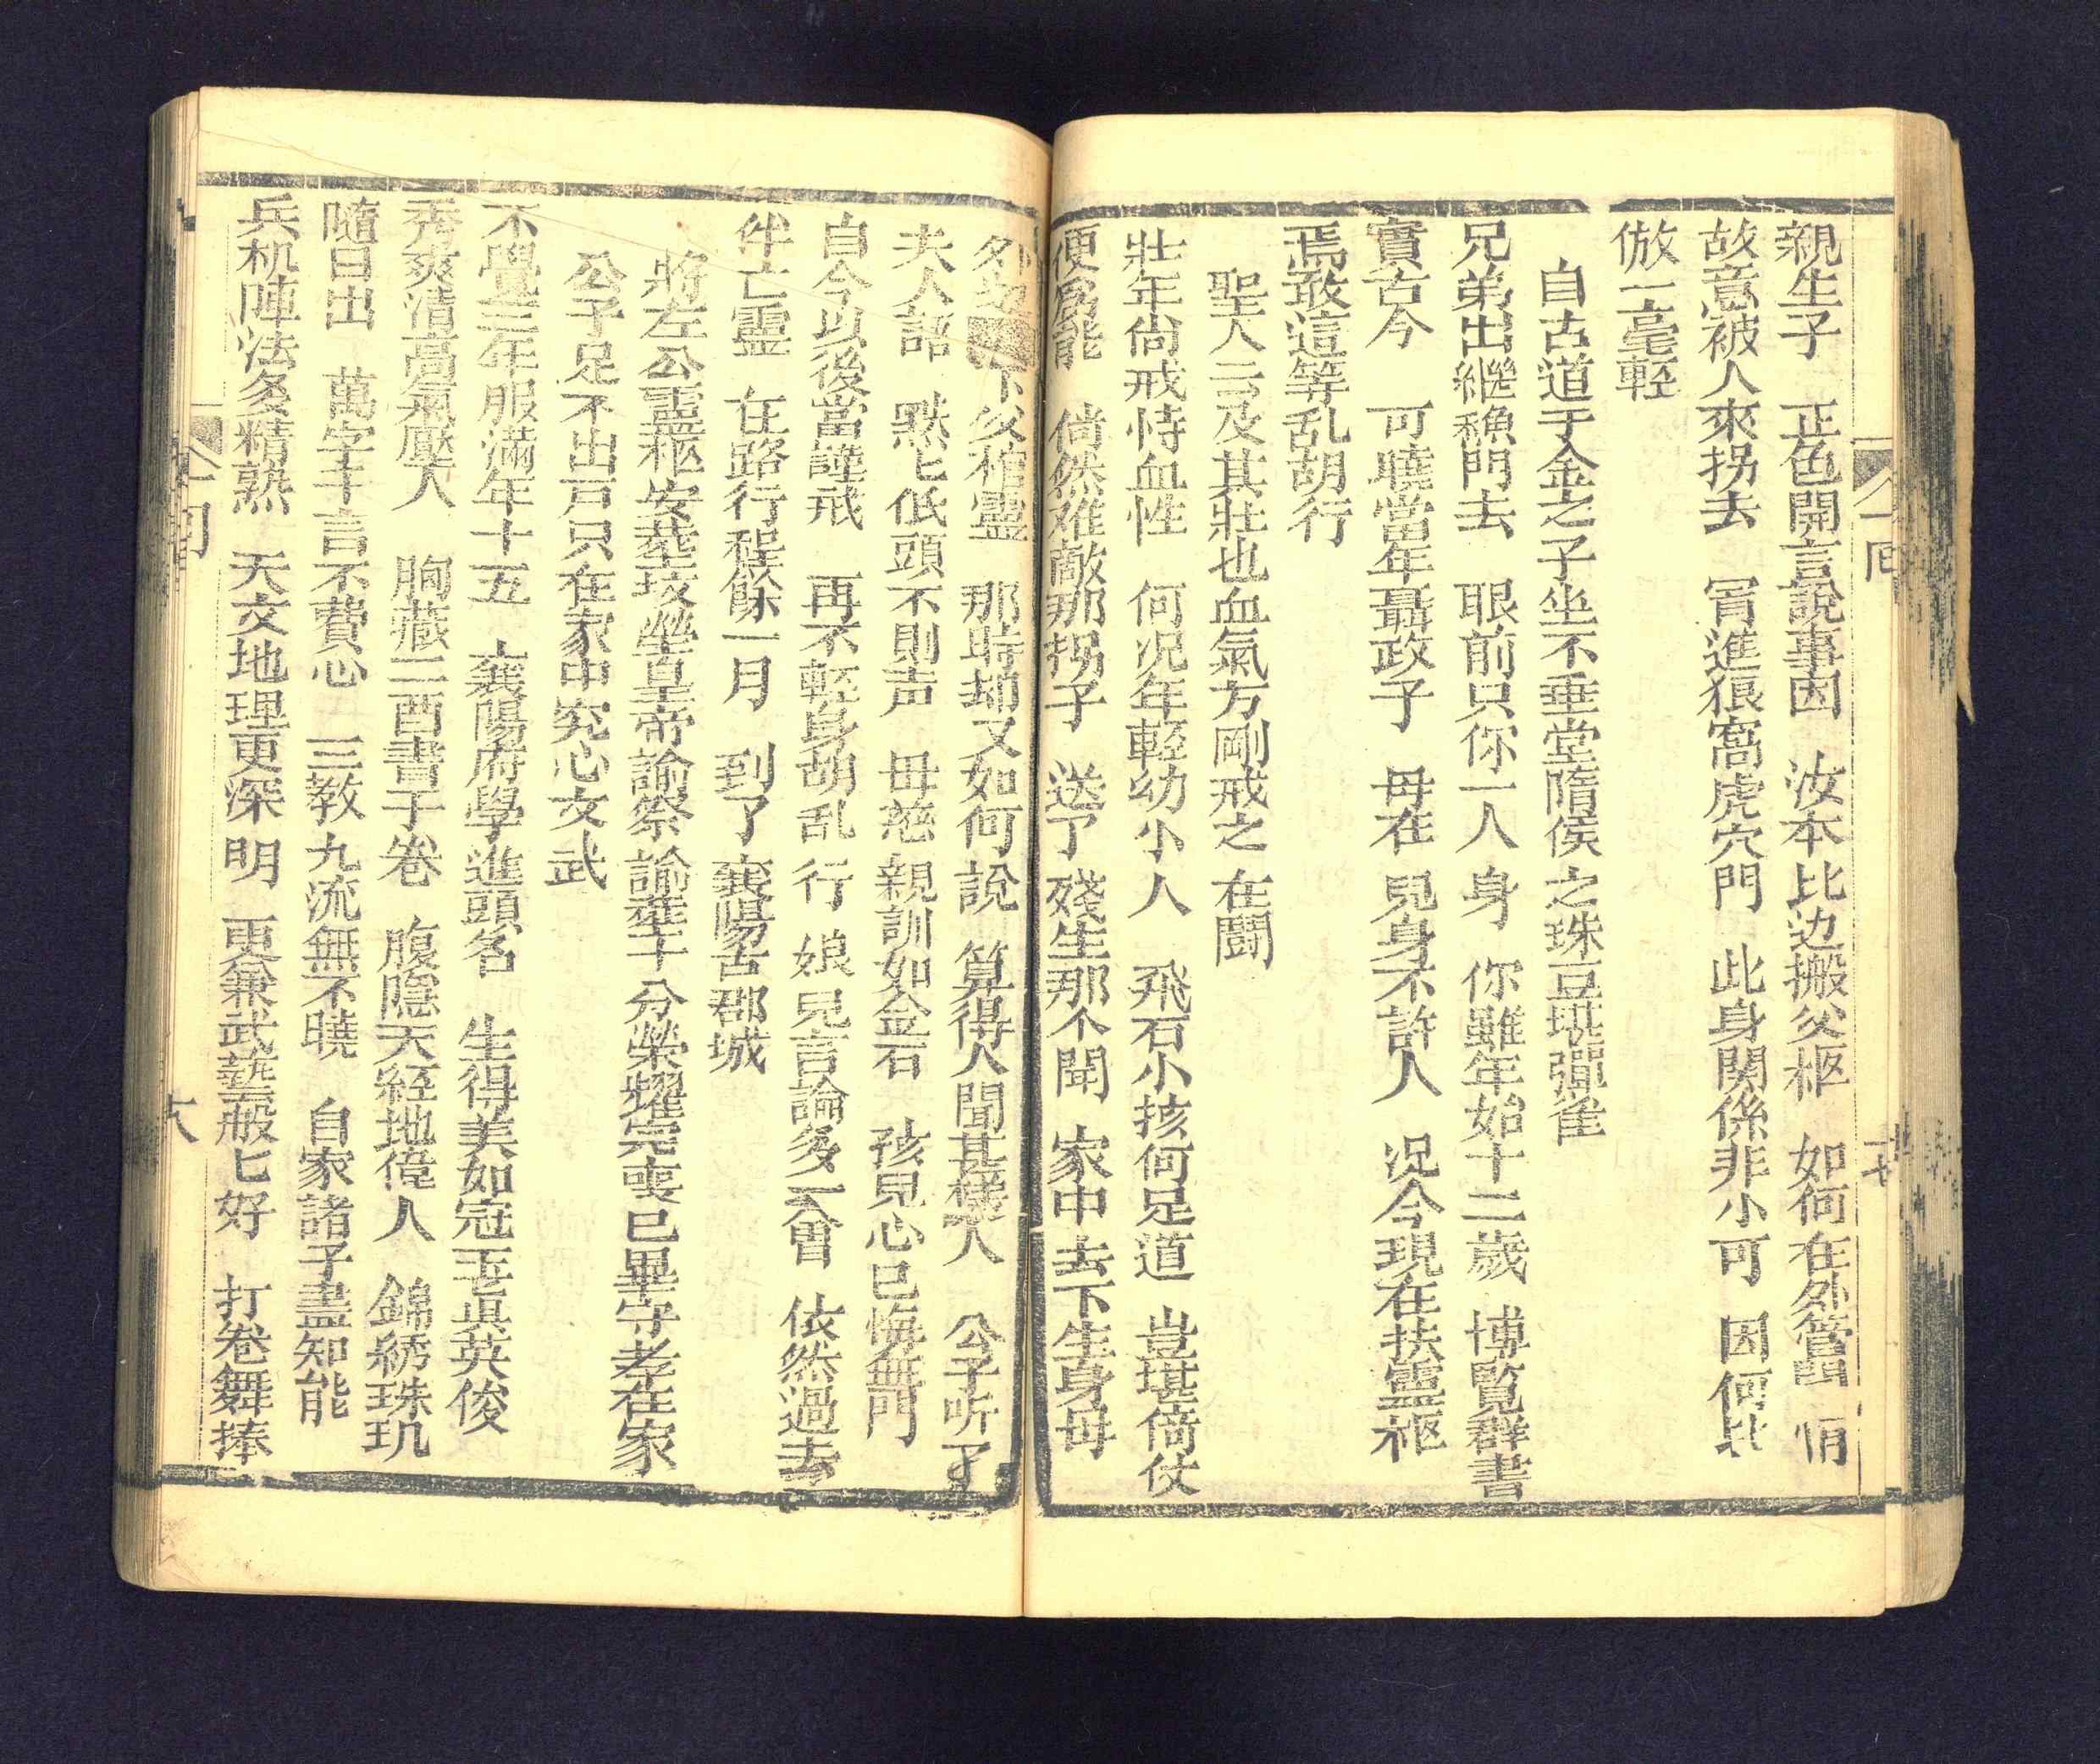 親生子　正色開言說事因　汝本比边搬父柩　如何在外管閒情
故意被人來拐去　冐進狼窩虎穴門　此身関係非小可　因何
倣一毫輕
自古道于金之子坐不垂堂隋侯之珠豈堪彈雀
兄弟出継穐門去　眼前只你一人身　你雖年始十二歲　博覧群書
實古今　可曉當年聶政子　毋在兒身不許人　况今現在扶靈柩
焉敢這等乱胡行
聖人云及其壯也血氣方剛戒之在鬪
壯年尙戒恃血性　何况年輕幼小人　飛石小孩何足道　豈堪倚仗
便爲能　倘然难敵那拐子　送了殘生那个聞　家中去下生身毋
外　下父棺靈　那時却又如何說　算得人間甚樣人　公子听了
夫人語　黙匕低頭不則声　毋慈親訓如金石　孩兒心已悔無門
自今以後當謹戒　再不輕身胡乱行　娘兒言論多一會　依然過去
伴亡靈　在路行程餘一月　到了襄陽古郡城
將左公靈柩安葬坟塋皇帝諭祭諭葬十分榮耀完喪已畢守孝在家
公子足不出戸只在家中究心文武
不覺三年服滿年十五　襄陽府學進頭名　生得美如冠玉眞英俊
秀爽清高氣壓人　胸藏二酉書千卷　腹隱天経地偉人　錦綉珠玑
隨口出　萬字千言不費心　三教九流無不曉　自家諸子盡知能
兵机陣法多精熟　天文地理更深明　更兼武藝般匕好　打卷舞捧
一回
十七
一回
十八